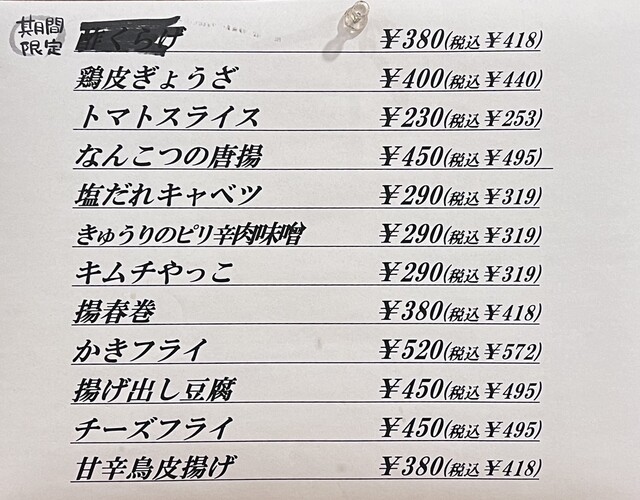 期間限定 ¥380(税込¥418)
鶏皮ぎょうざ ¥400(税込¥440)
トマトスライス ¥230(税込¥253)
なんこつの唐揚 ¥450(税込¥495)
塩だれキャベツ ¥290(税込¥319)
きゅうりのピリ辛肉味噌 ¥290(税込¥319)
キムチやっこ ¥290(税込¥319)
揚春巻 ¥380(税込¥418)
かきフライ ¥520(税込¥572)
揚げ出し豆腐 ¥450(税込¥495)
チーズフライ ¥450(税込¥495)
甘辛鳥皮揚げ ¥380(税込¥418)